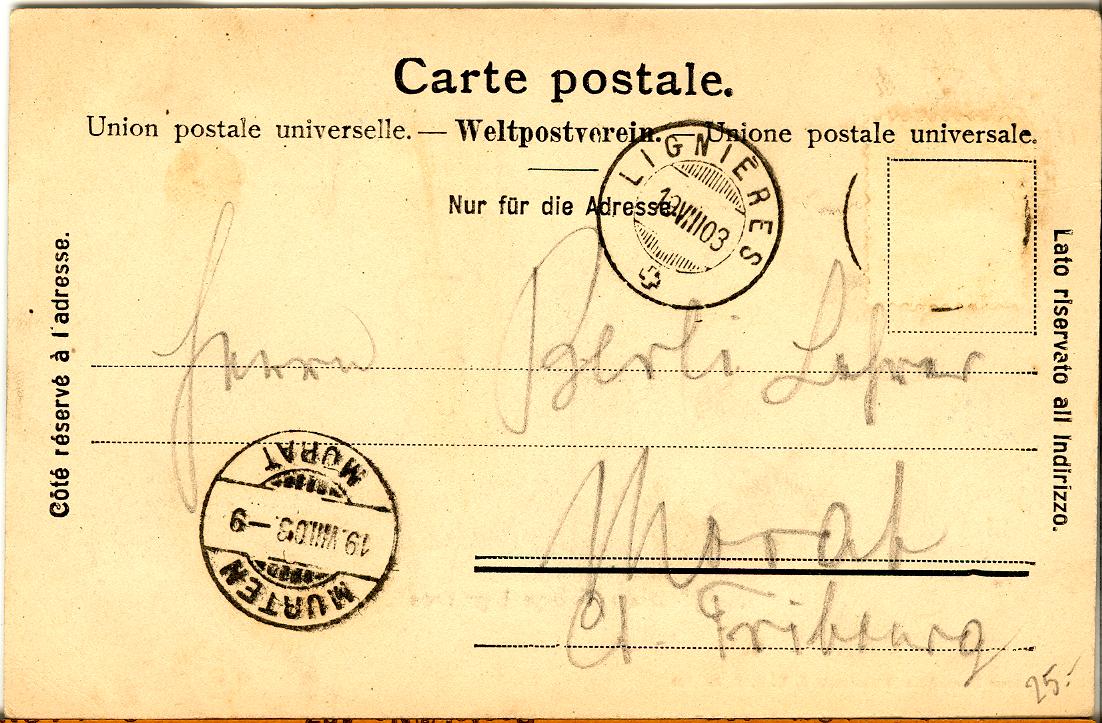 Carte postale.
Union postale universelle. — Weltpostverein. — Unione postale universale.
Nur für die Adresse.
LIGNIÈRES
19 VIII 03
Côté réservé à l'adresse.
Lato riservato all Indirizzo.
Herrn Berli Lehrer
Morat
Ct. Fribourg
MURTEN
19.VIII.03.–9
MORAT
25.-